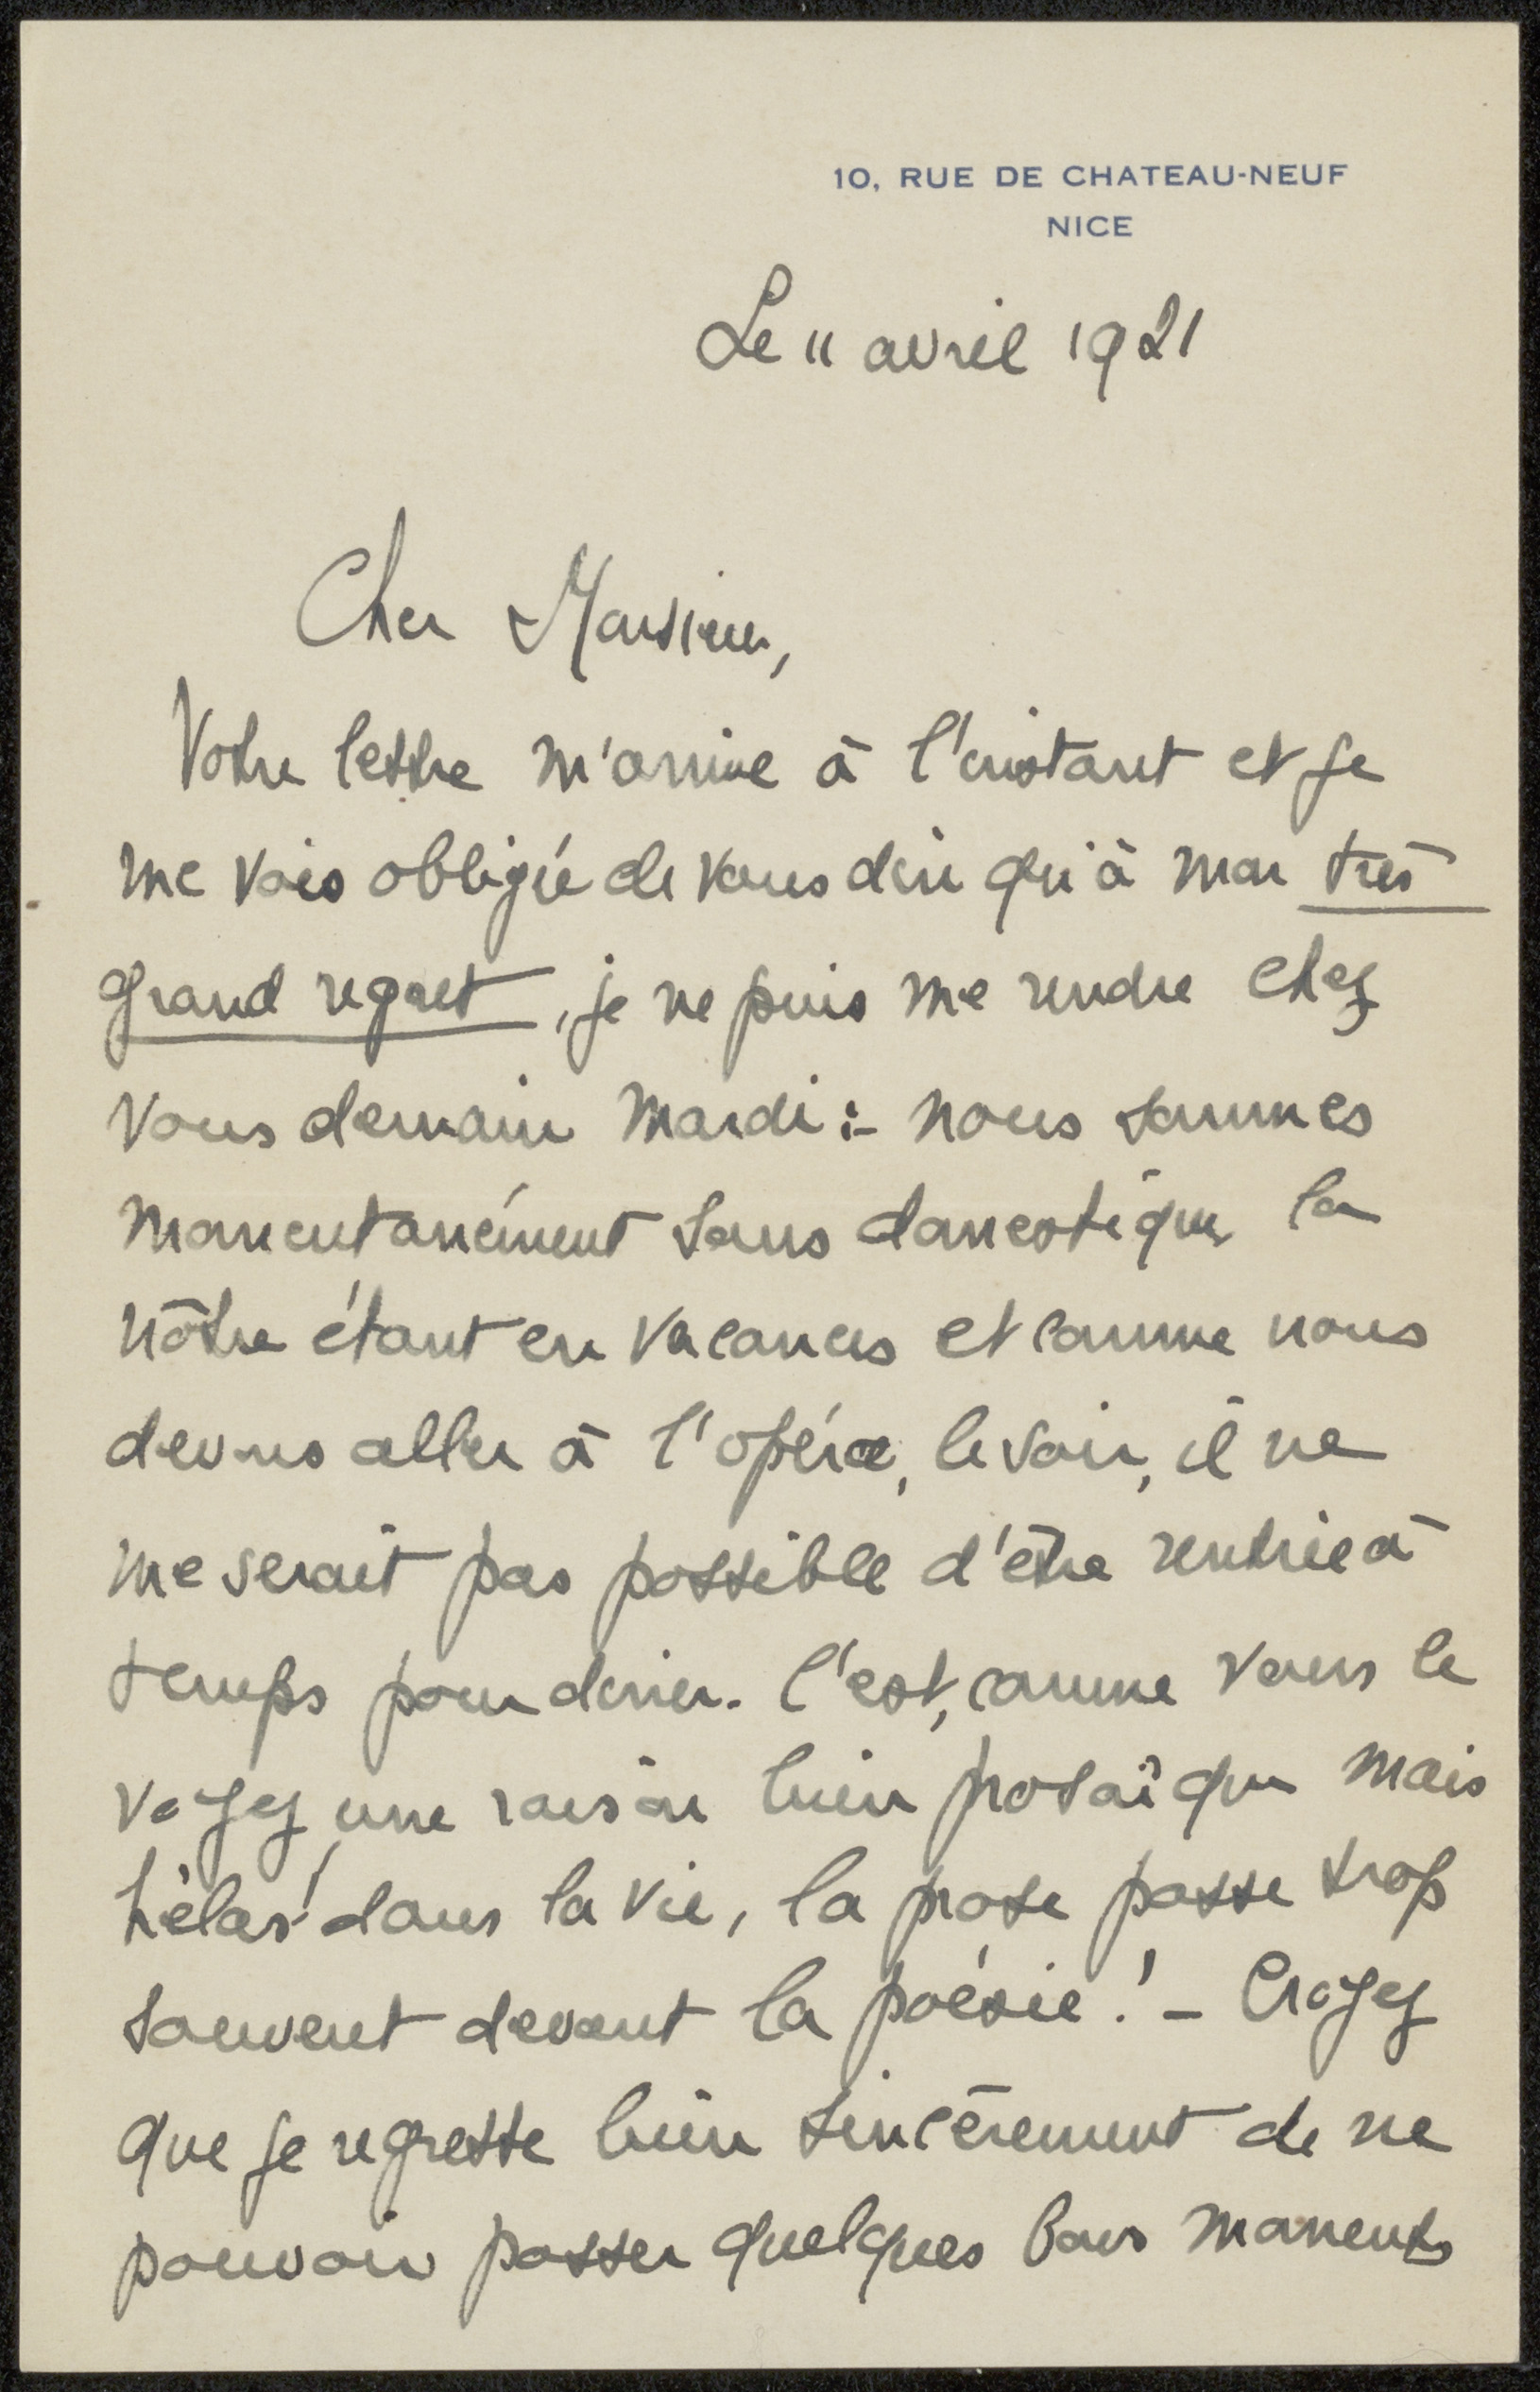 10, RUE DE CHATEAU-NEUF
NICE
Le 11 avril 1921
Cher Monsieur,
Votre lettre m'arrive à l'instant et je
me vois obligée de vous dire qu'à mon très
grand regret, je ne puis me rendre chez
vous demain mardi :- nous sommes
momentanément sans domestique, la
nôtre étant en vacances et comme nous
devons aller à l'opéra, le soir, il ne
me serait pas possible d'être rentrée à
temps pour dîner. C'est, comme vous le
voyez, une raison bien prosaïque mais
hélas! dans la vie, la prose passe trop
souvent devant la poésie! - Croyez
que je regrette bien sincèrement de ne
pouvoir passer quelques bons moments